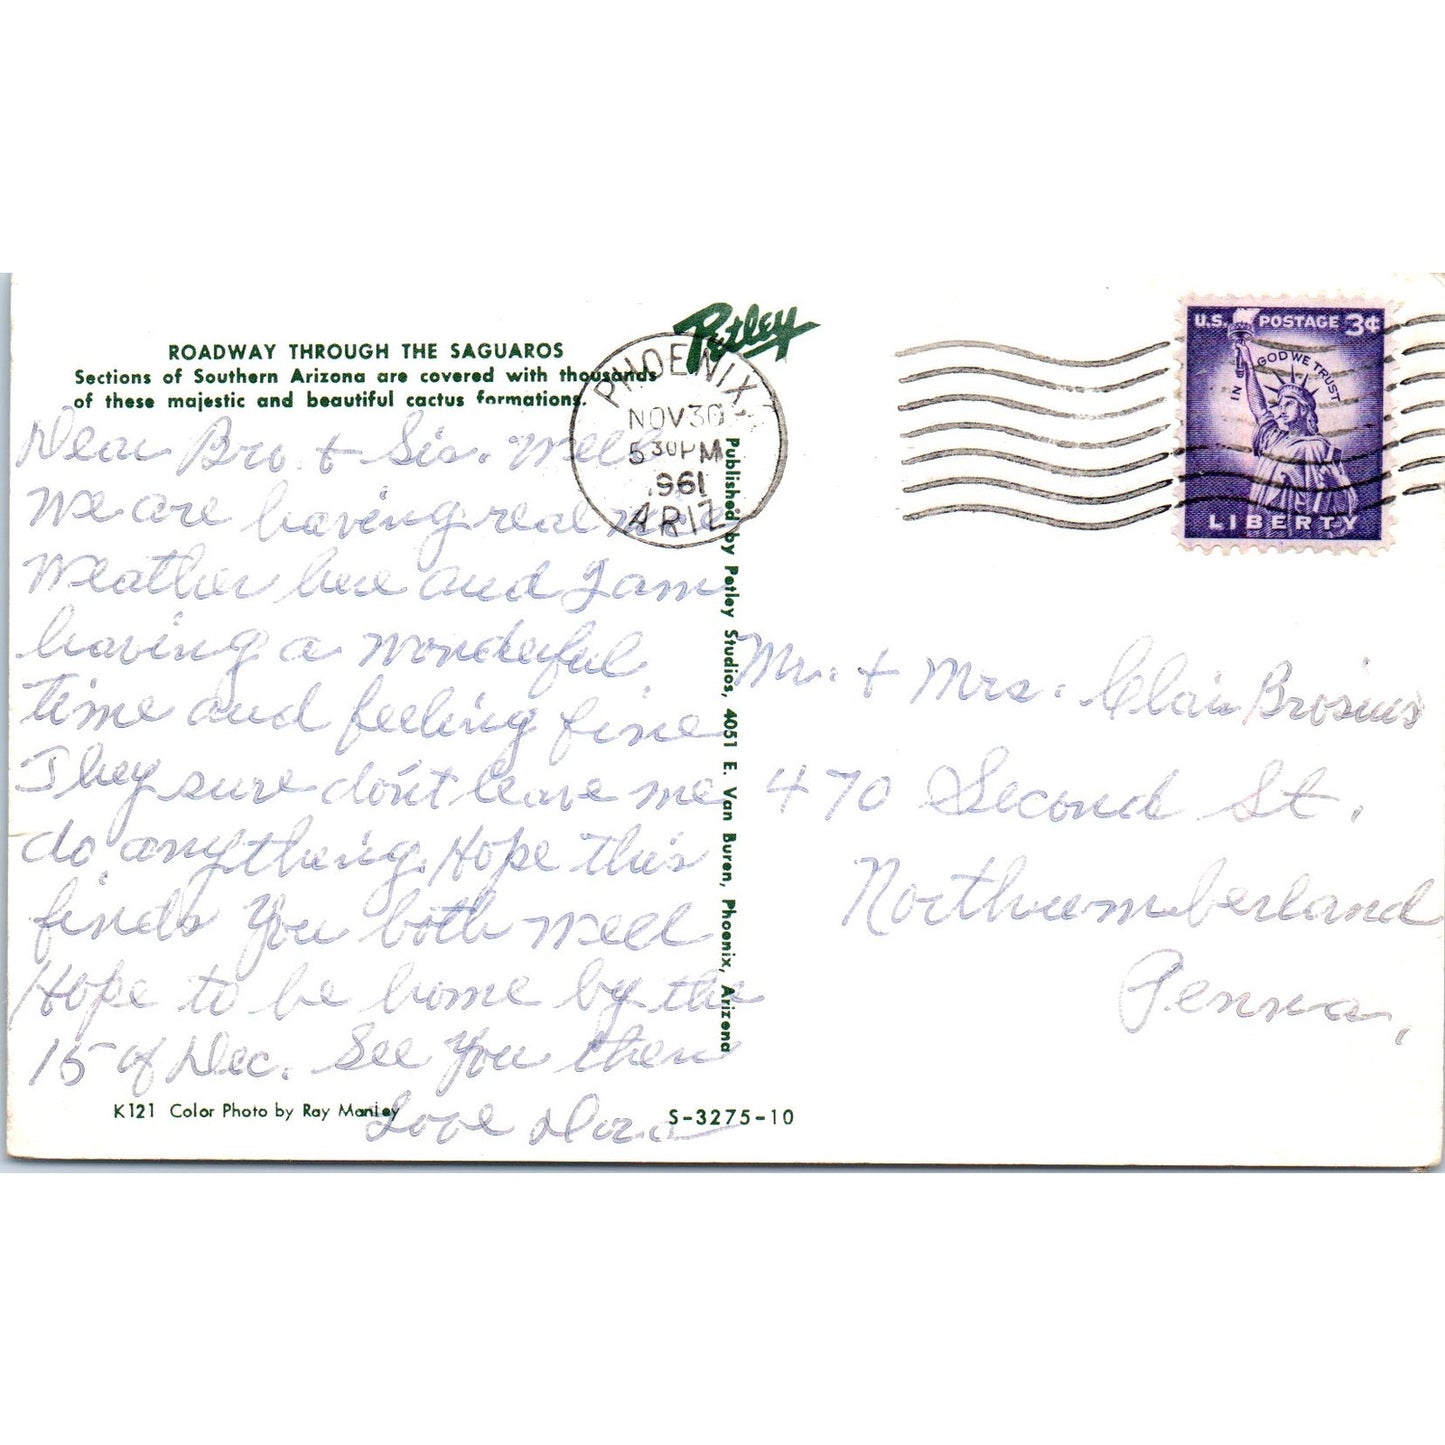 Petley
ROADWAY THROUGH THE SAGUAROS
Sections of Southern Arizona are covered with thousands
of these majestic and beautiful cactus formations.
Dear Bro. + Sis. Well
We are having real nice
Weather here and I am
having a wonderful
time and feeling fine
They sure don't leave me
do anything. Hope this
finds You both well
Hope to be home by the
15 of Dec. See You then
Love Dora
K121 Color Photo by Ray Manley
S-3275-10
Published by Petley Studios, 4051 E. Van Buren, Phoenix, Arizona
PHOENIX
NOV 30
5 30 PM
1961
ARIZ
U.S. POSTAGE 3¢
IN GOD WE TRUST
LIBERTY
Mr. + Mrs. Clair Brosius
470 Second St.
Northumberland
Penna,